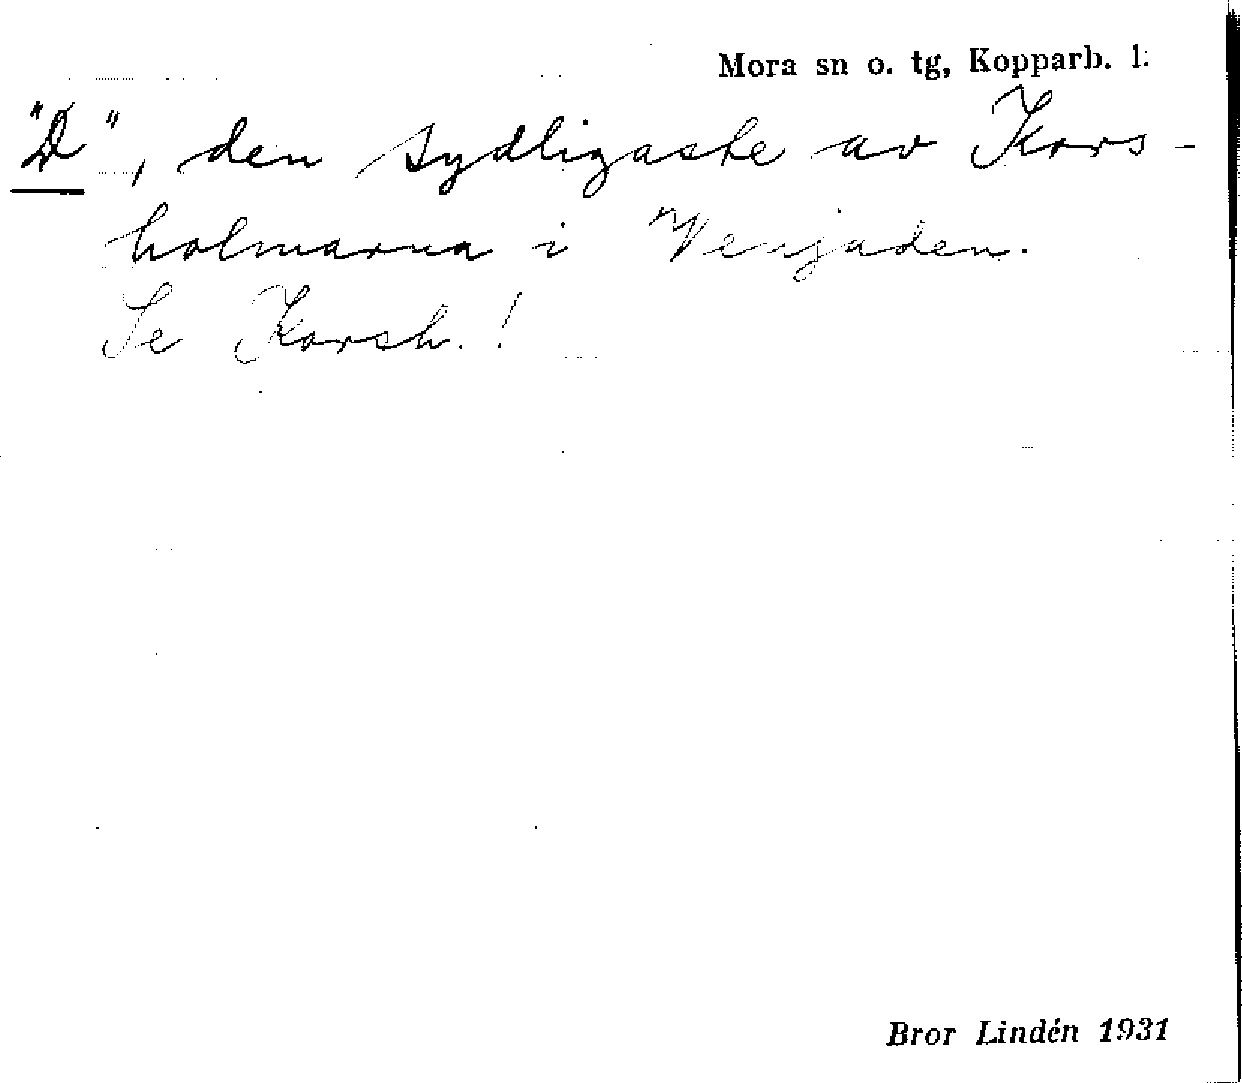 Mora sn o. tg, Kopparb. l:
"D", den sydligaste av Kors-
holmarna i Venjaden.
Se Korsh.!
Bror Lindén 1931